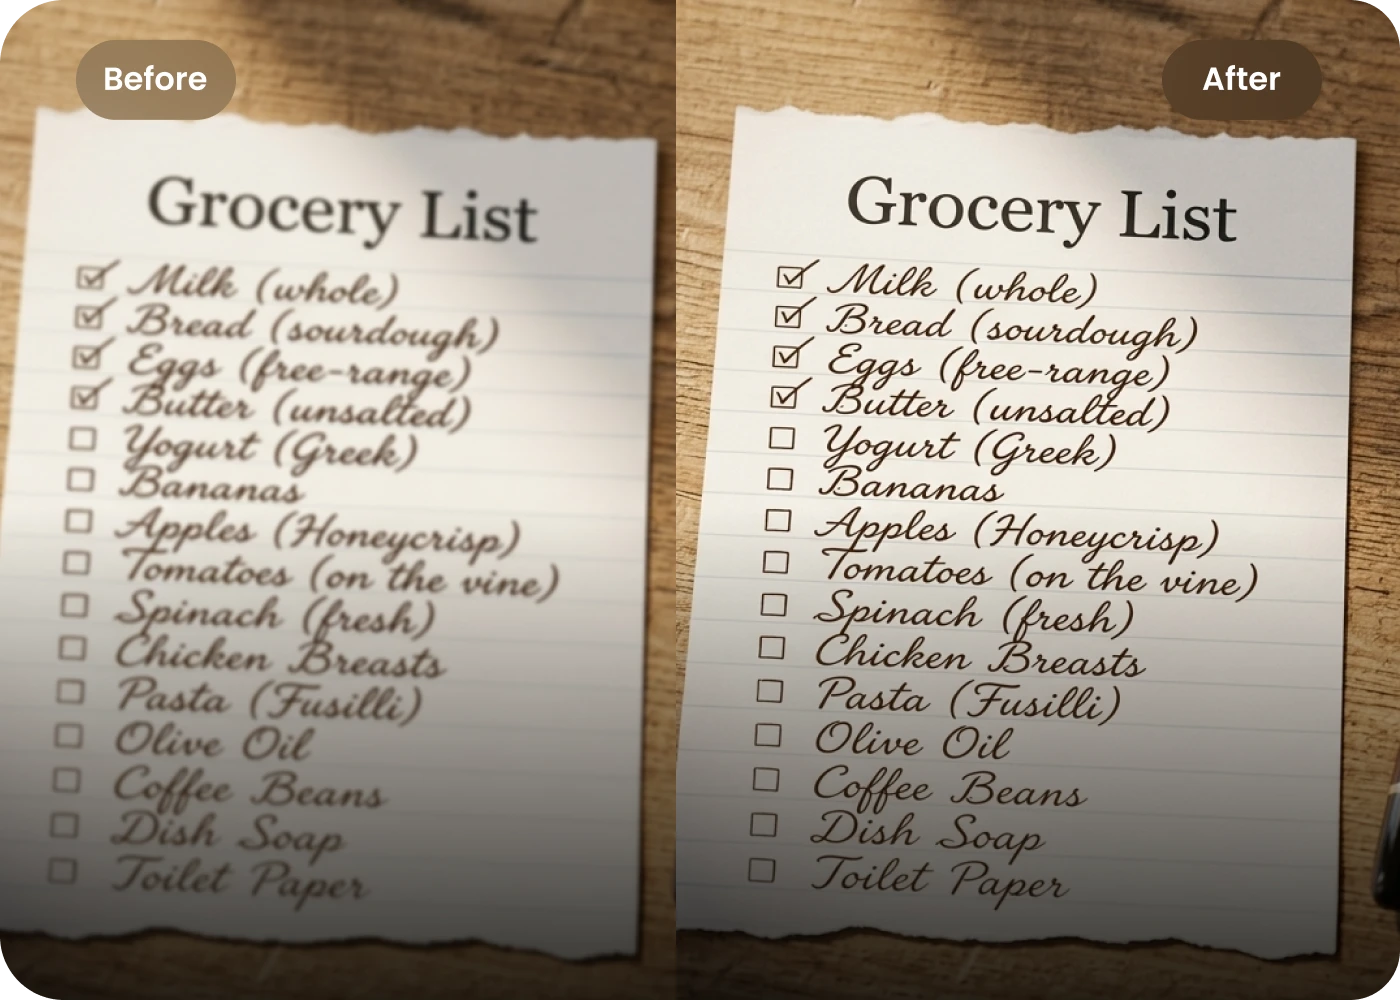 Before
Grocery List
☑ Milk (whole)
☑ Bread (sourdough)
☑ Eggs (free-range)
☑ Butter (unsalted)
☐ Yogurt (Greek)
☐ Bananas
☐ Apples (Honeycrisp)
☐ Tomatoes (on the vine)
☐ Spinach (fresh)
☐ Chicken Breasts
☐ Pasta (Fusilli)
☐ Olive Oil
☐ Coffee Beans
☐ Dish Soap
☐ Toilet Paper
After
Grocery List
☑ Milk (whole)
☑ Bread (sourdough)
☑ Eggs (free-range)
☑ Butter (unsalted)
☐ Yogurt (Greek)
☐ Bananas
☐ Apples (Honeycrisp)
☐ Tomatoes (on the vine)
☐ Spinach (fresh)
☐ Chicken Breasts
☐ Pasta (Fusilli)
☐ Olive Oil
☐ Coffee Beans
☐ Dish Soap
☐ Toilet Paper